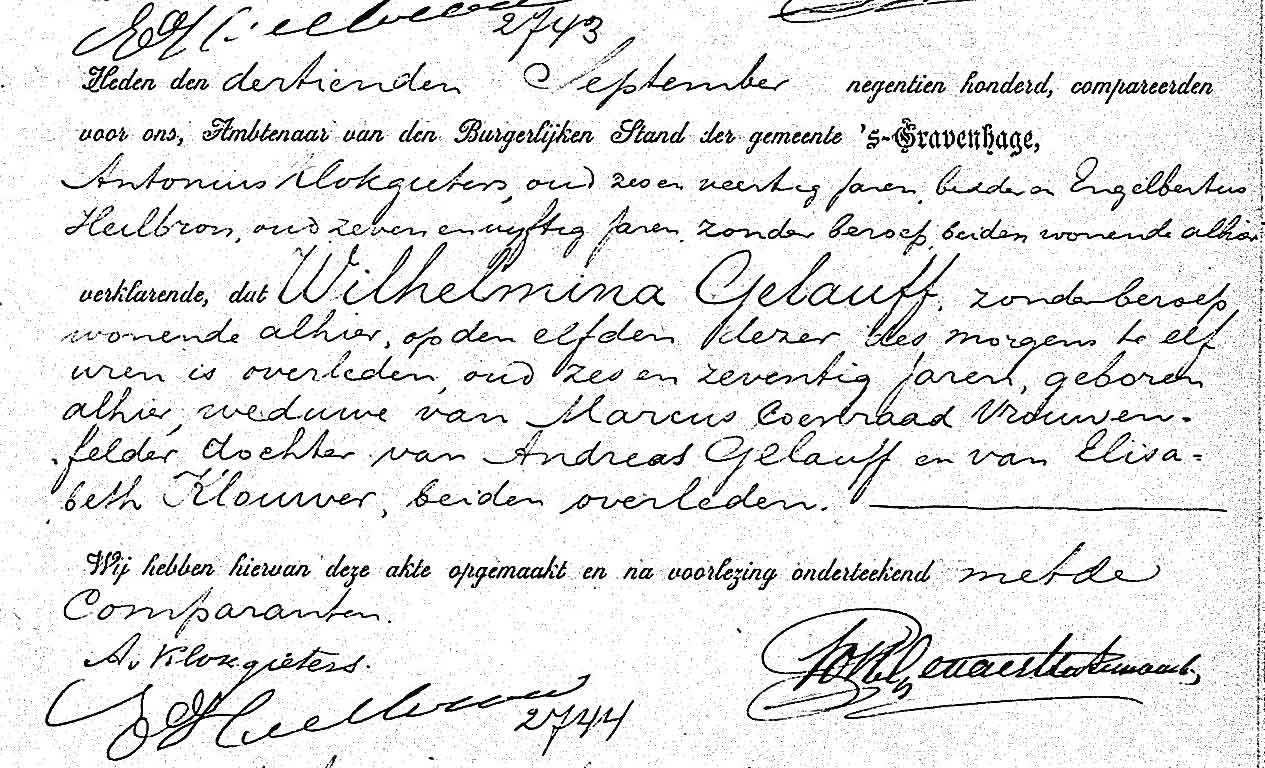 2743
Heden den dertienden September negentien honderd, compareerden
voor ons, Ambtenaar van den Burgerlijken Stand der gemeente 's-Gravenhage,
Antonius Klokgieters, oud zes en veertig jaren, bidder en Engelbertus
Heilbron, oud zeven en vyftig jaren, zonder beroep, beiden wonende alhier
verklarende, dat Wilhelmina Gelauff, zonder beroep
wonende alhier, op den elfden dezer des morgens te elf
uren is overleden, oud zes en zeventig jaren, geboren
alhier, weduwe van Marcus Coenraad Vrouwen-
felder, dochter van Andreas Gelauff en van Elisa=
beth Klouwer, beiden overleden.
Wij hebben hiervan deze akte opgemaakt en na voorlezing onderteekend met de
Comparanten.
A. Klokgieters.
2744